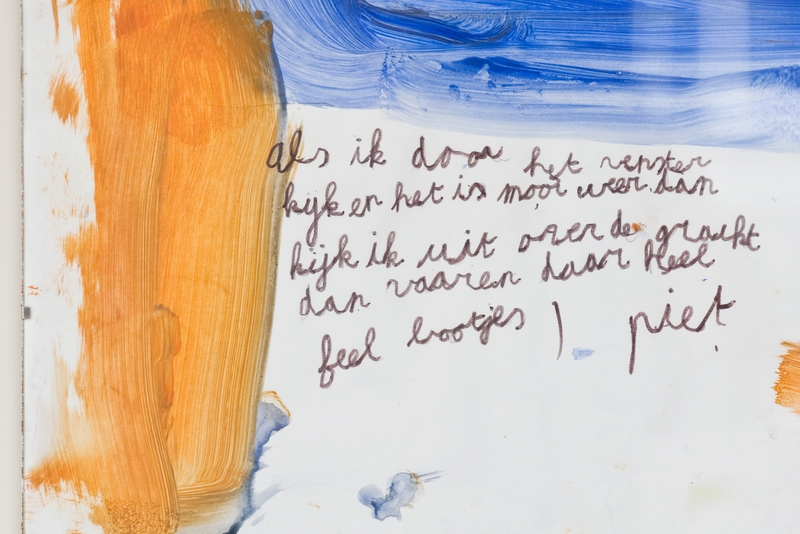 als ik door het venster
kijk en het is mooi weer dan
kijk ik uit over de gracht
dan vaaren daar heel
feel bootjes ) piet